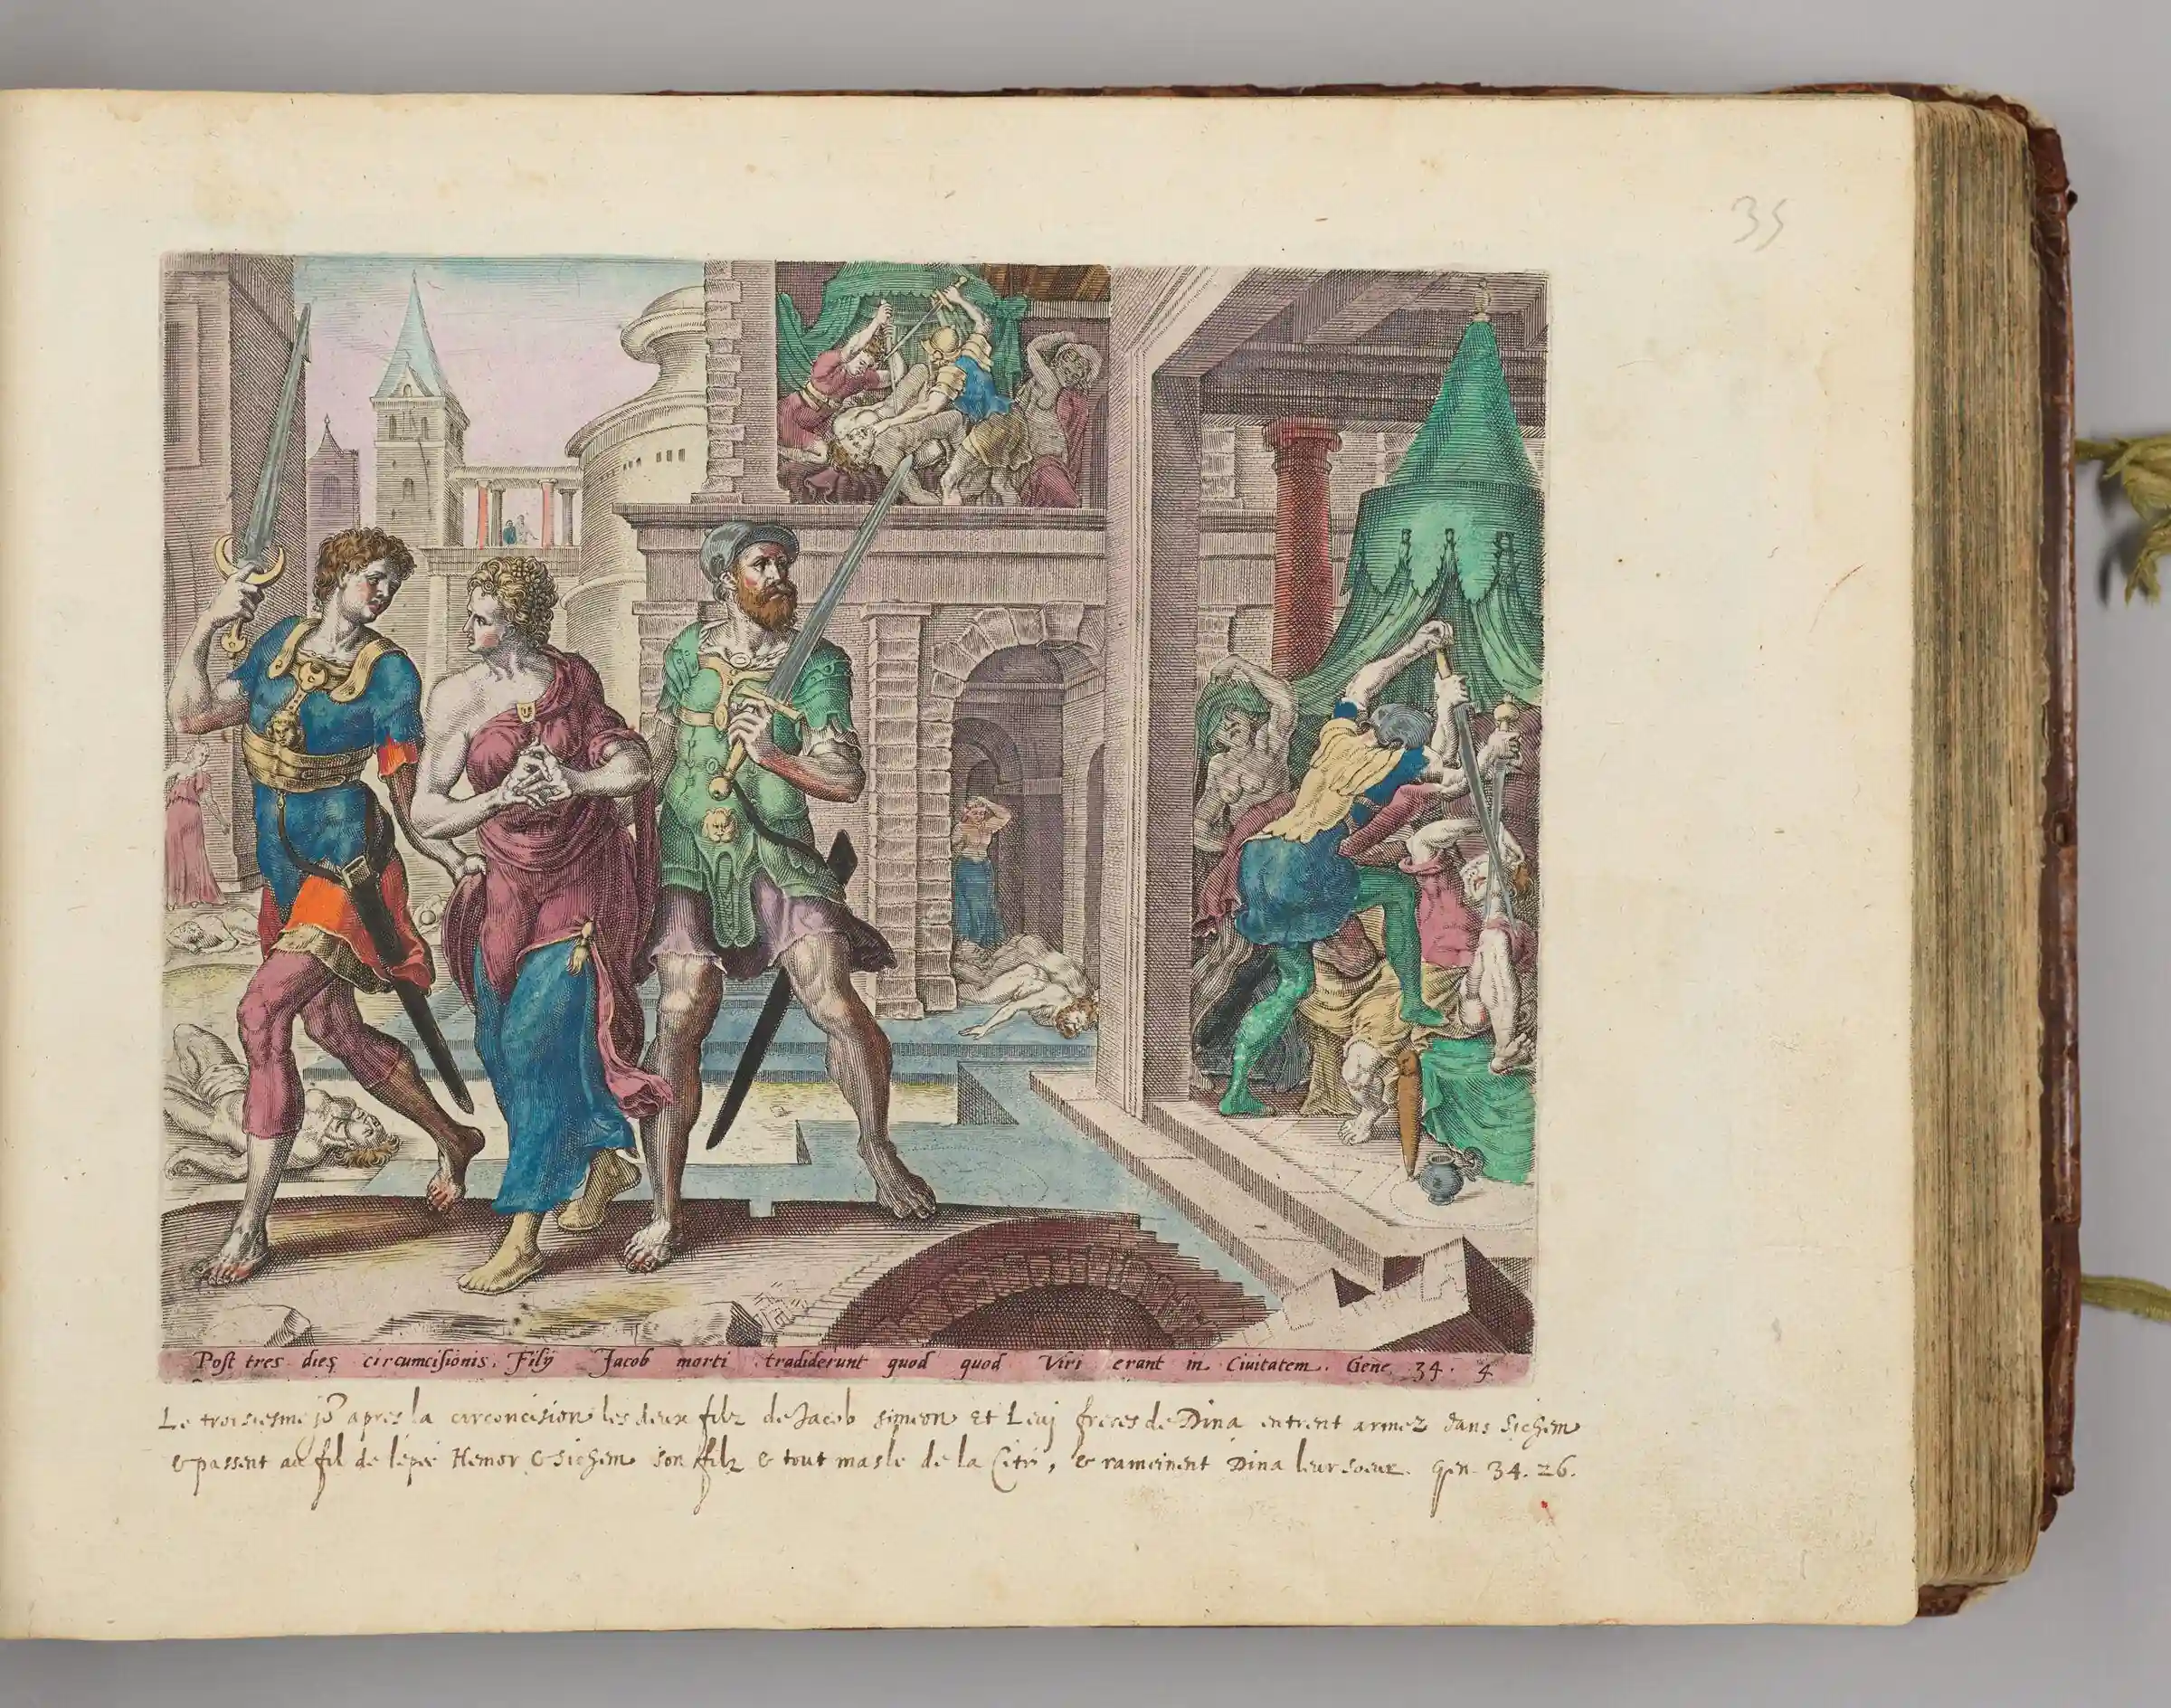 35
Post tres dies circumcisionis. Filij Jacob morti tradiderunt quod quod Viri erant in Ciuitatem. Gene. 34. 4
Le troisiesme jor apres la circoncision les deux filz de Jacob simeon et Leuj freres de Dina entrent armez dans Sichem
& passent au fil de lepée Hemor & Sichem son filz & tout masle de la Cité, & rameinent Dina leur soeur. Gen. 34. 26.